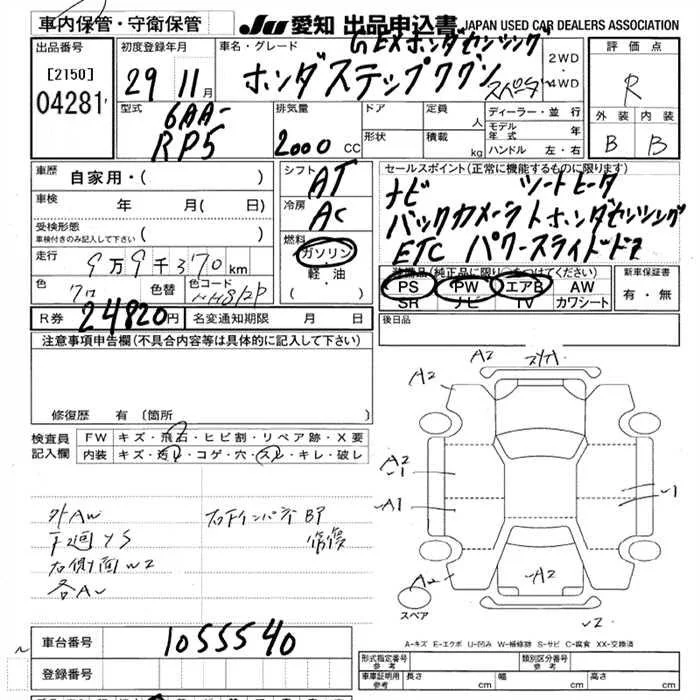 車内保管・守衛保管
JU 愛知 出品申込書 JAPAN USED CAR DEALERS ASSOCIATION
出品番号
[2150]
04281
初度登録年月
29 11月
車名・グレード
G EXホンダセンシング
ホンダ ステップワゴン
スペーダ
2WD
・
4WD
評価点
R
外装 内装
B B
型式
6AA-
RP5
排気量
2000 CC
ドア
形状
定員 人
積載 kg
ディーラー・並行
モデル年式 年
ハンドル 左・右
車歴
自家用・( )
車検 年 月( 日)
受検形態
車検付きのみ記入して下さい ( )
走行 9万9千370km
色 クロ 色替 色コード
R券 24820円 名変通知期限 月 日
シフト AT
冷房 AC
燃料
ガソリン
・
軽・油
( )
セールスポイント(正常に機能するものに限ります)
ナビ シートヒータ
バックカメラ ホンダセンシング
ETC パワースライドドア
装備品(純正品に限り○をつけてください)
PS PW エアB AW
SR ナビ TV カワシート
新車保証書
有・無
後日品
注意事項申告欄(不具合内容等は具体的に記入して下さい)
修復歴 有 〔箇所
検査員記入欄
FW キズ・飛石・ヒビ割・リペア跡・X要
内装 キズ・汚レ・コゲ・穴・スレ・キレ・破レ
外AW
下廻YS
右側面W2
各A
右Rインパネ BP
修復
A2
A2
A2
1
A1
1
A2
2
スペア
A-キズ E-エクボ U-凹み W-補修跡 S-サビ C-腐食 XX-交換済
車台番号 1055540
登録番号
形式指定番号 参考
類別区分番号 参考
車庫証明用 参考 長さ cm 幅 cm 高さ cm